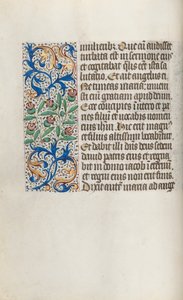 mulieribus. Que cũ audisset
turbata est in sermone eius
et cogitabat qualis esset ista sa
lutatio. Et ait angelus ei
Ne timeas maria invenisti
enĩ gratiam apud deum.
Ecce concipies in utero et pa
ries filiũ et vocabis nomen
eius ihm. Hic erit magnꝰ
et filius altissimi vocabitur.
Et dabit illi dñs deus sedem
david patris eius et regna
bit in domo iacob ĩ eternũ
et regni eius non erit finis.
Dixit autẽ maria ad ange